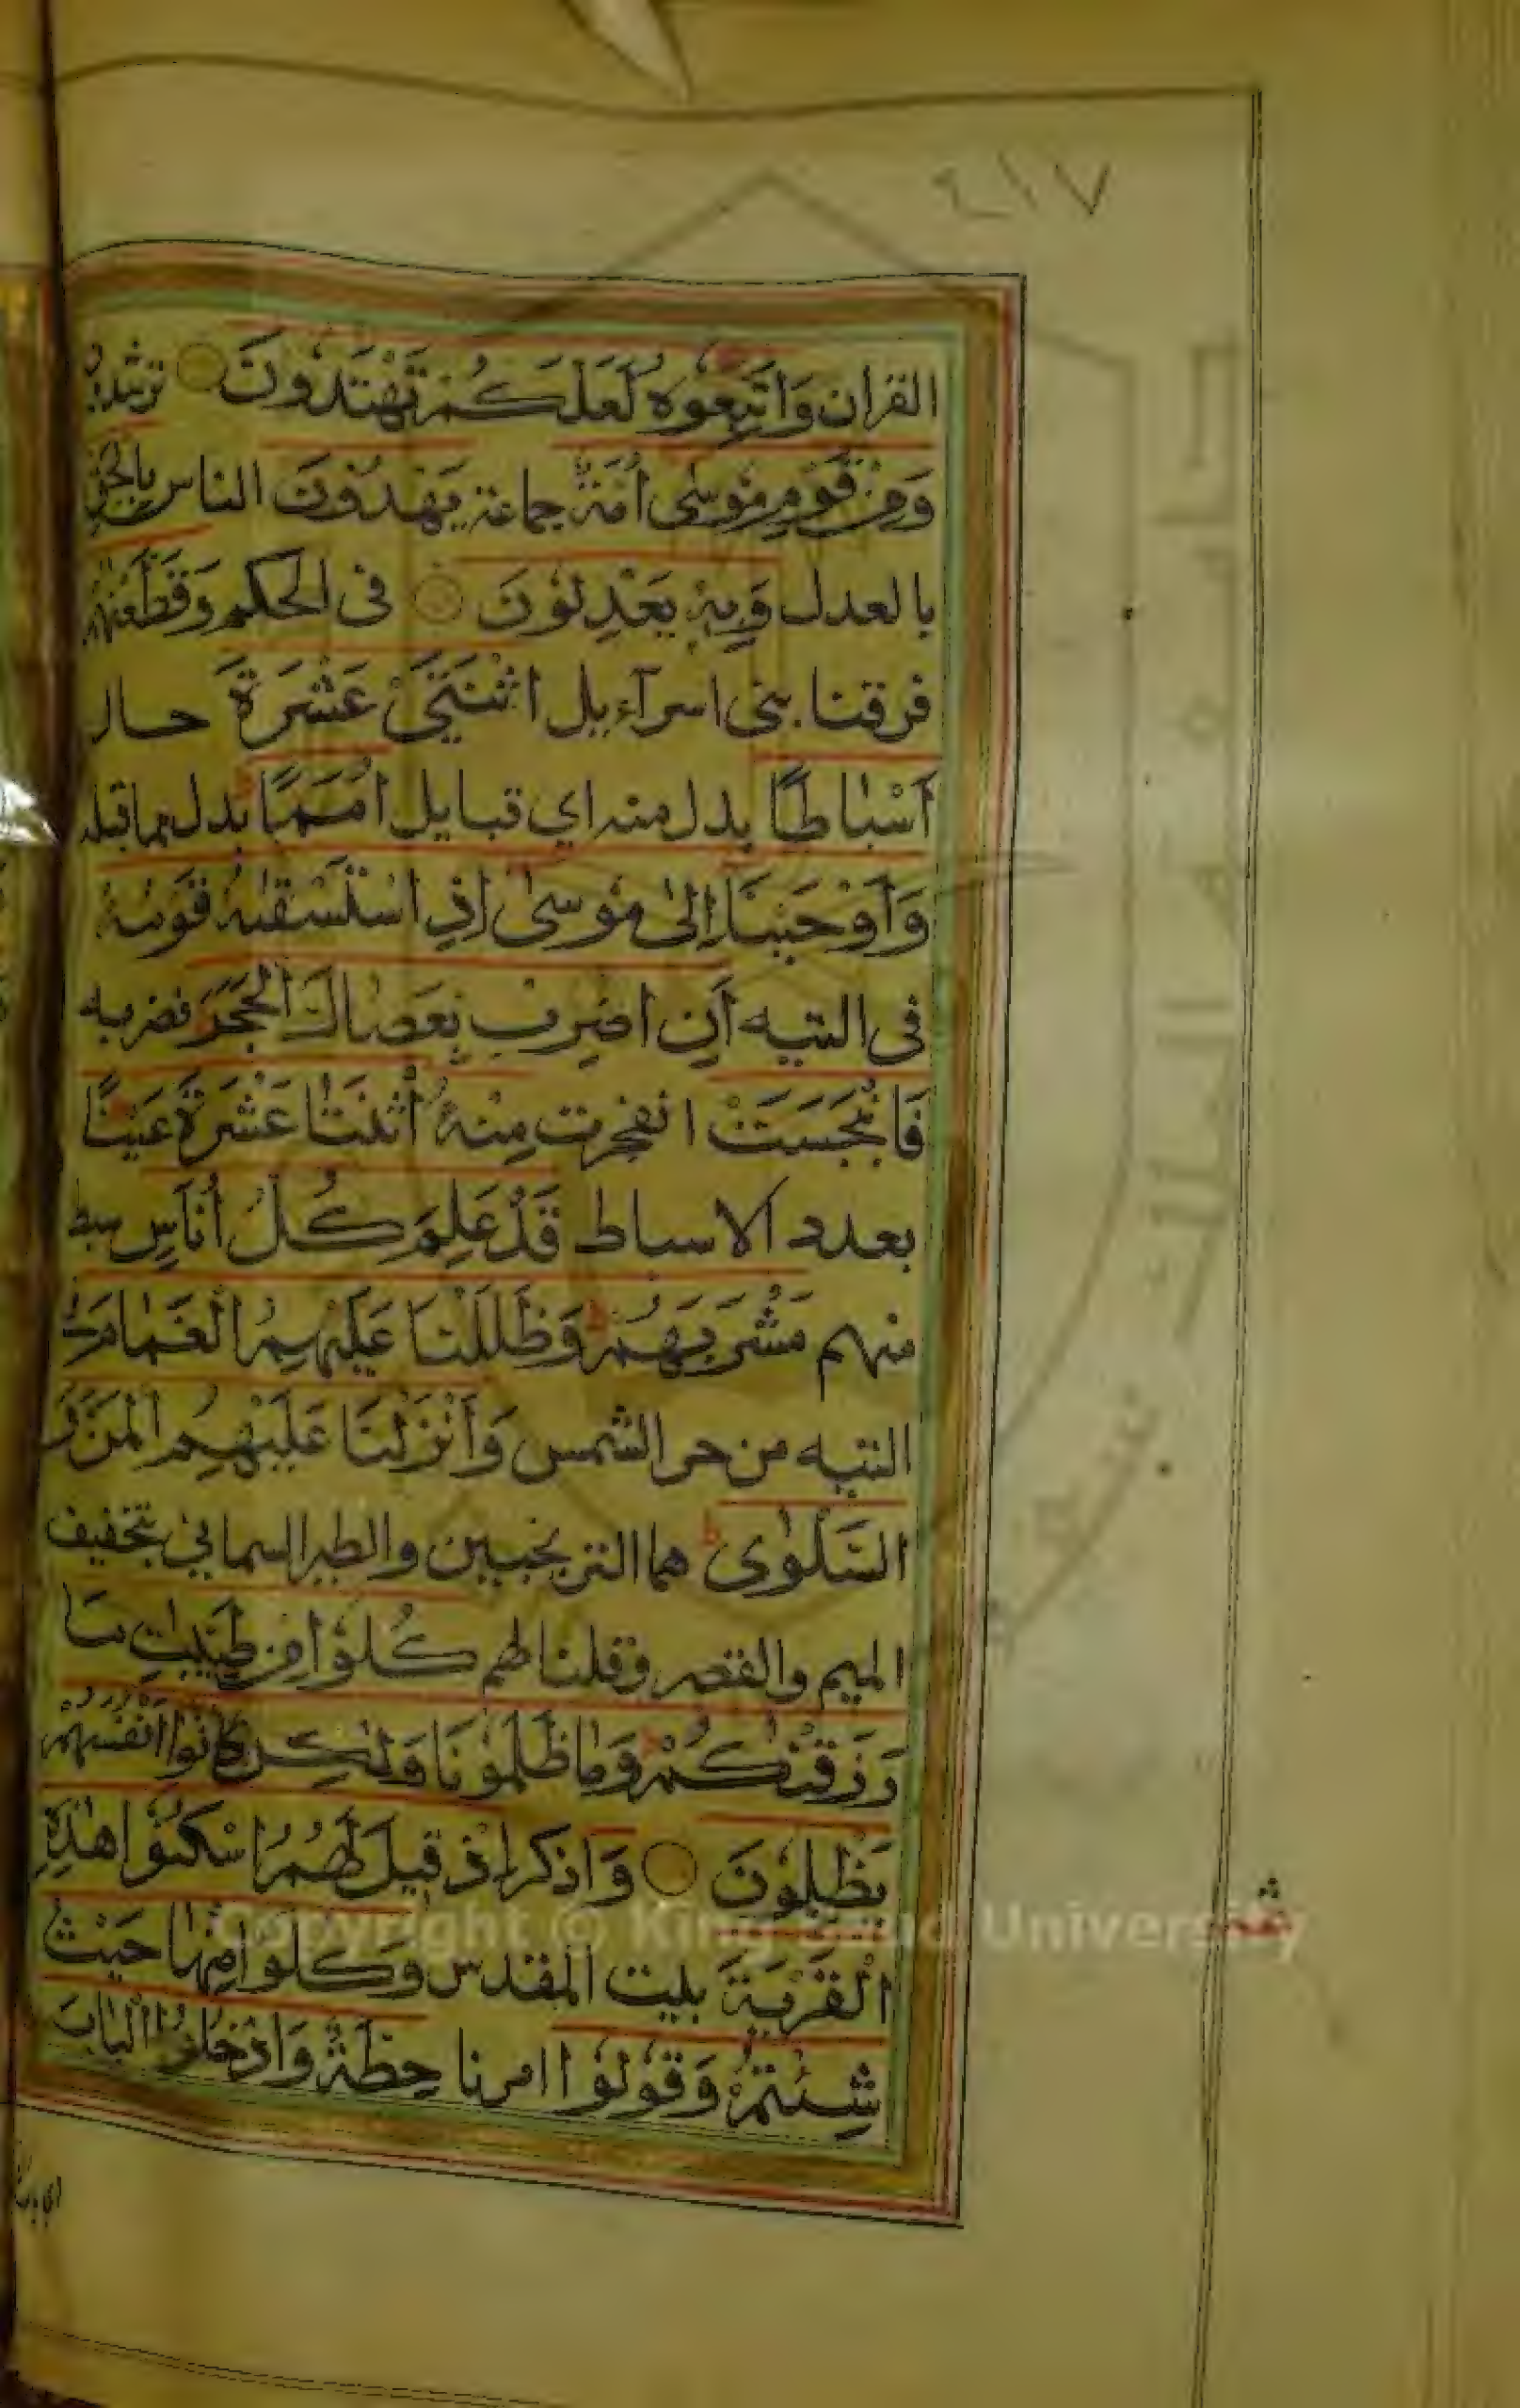 ٤١٧
القران وَاتَّبِعُوهُ لَعَلَّكُمْ تَهْتَدُونَ ترشدون
وَمِنْ قَوْمِ مُوسٰى اُمَّةٌ جماعة يَهْدُونَ الناس بِالْحَقِّ
بالعدل وَبِهٖ يَعْدِلُوْنَ فى الحكم وَقَطَّعْنٰهُمْ
فرقنا بنى اسرآءيل اثْنَتَيْ عَشْرَةَ حال
اَسْبَاطًا بدل منه اي قبايل اُمَمًا ط بدل مما قبله
وَاَوْحَيْنَا اِلٰى مُوسٰى اِذِ اسْتَسْقٰىهُ قَوْمُهُ
فى التيه اَنِ اضْرِبْ بِعَصَاكَ الْحَجَرَ فضربه
فَانْبَجَسَتْ انفجرت مِنْهُ اثْنَتَا عَشْرَةَ عَيْنًا ط
بعدد الاسباط قَدْ عَلِمَ كُلُّ اُنَاسٍ سبط
منهم مَشْرَبَهُمْ ط وَظَلَّلْنَا عَلَيْهِمُ الْغَمَامَ فى
التيه من حر الشمس وَاَنْزَلْنَا عَلَيْهِمُ الْمَنَّ وَ
السَّلْوٰى ط هما الترنجبين والطير السمانى بتخفيف
الميم والقصر وقلنا لهم كُلُوْا مِنْ طَيِّبٰتِ مَا
رَزَقْنٰكُمْ ط وَمَا ظَلَمُوْنَا وَلٰكِنْ كَانُوْا اَنْفُسَهُمْ
يَظْلِمُوْنَ وَاذكر اِذْ قِيْلَ لَهُمُ اسْكُنُوْا هٰذِهِ
الْقَرْيَةَ بيت المقدس وَكُلُوْا مِنْهَا حَيْثُ
شِئْتُمْ وَقُوْلُوْا امرنا حِطَّةٌ وَادْخُلُوا الْبَابَ
Copyright © King Saud University